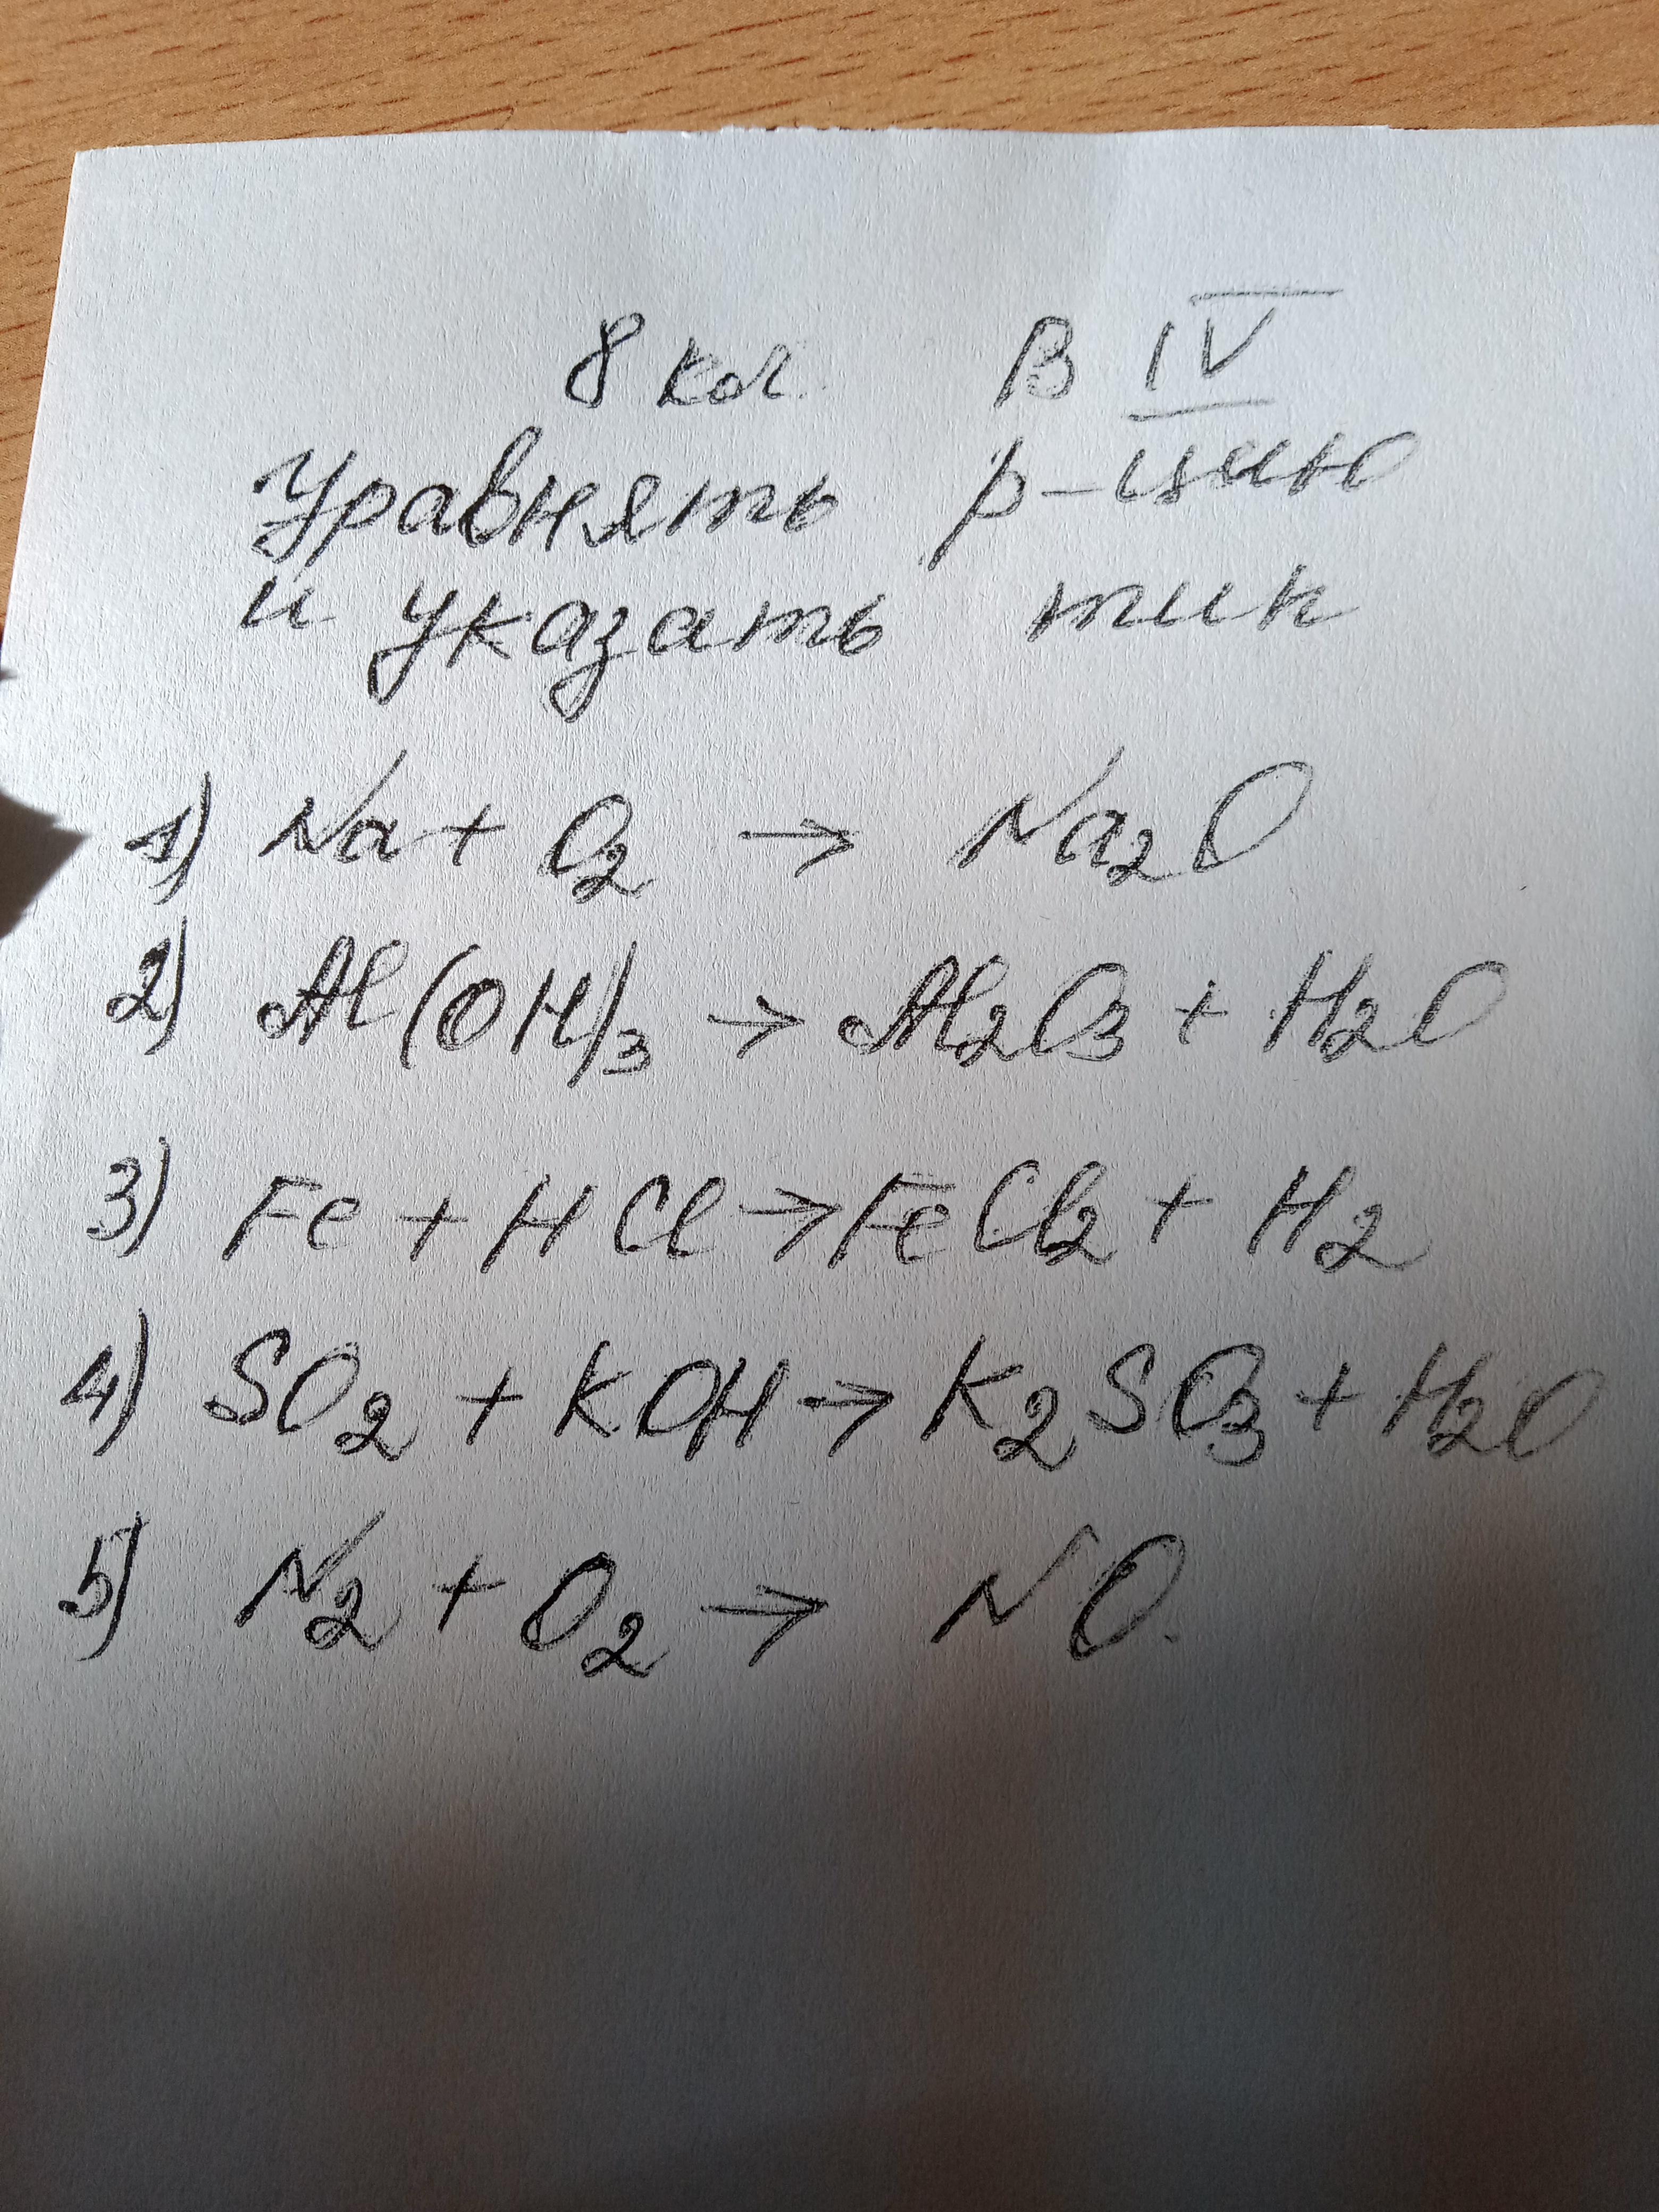 8 кл. В IV
Уравнять р-цию
и указать тип
1) Na + O₂ → Na₂O
2) Al(OH)₃ → Al₂O₃ + H₂O
3) Fe + HCl → FeCl₂ + H₂
4) SO₂ + KOH → K₂SO₃ + H₂O
5) N₂ + O₂ → NO.